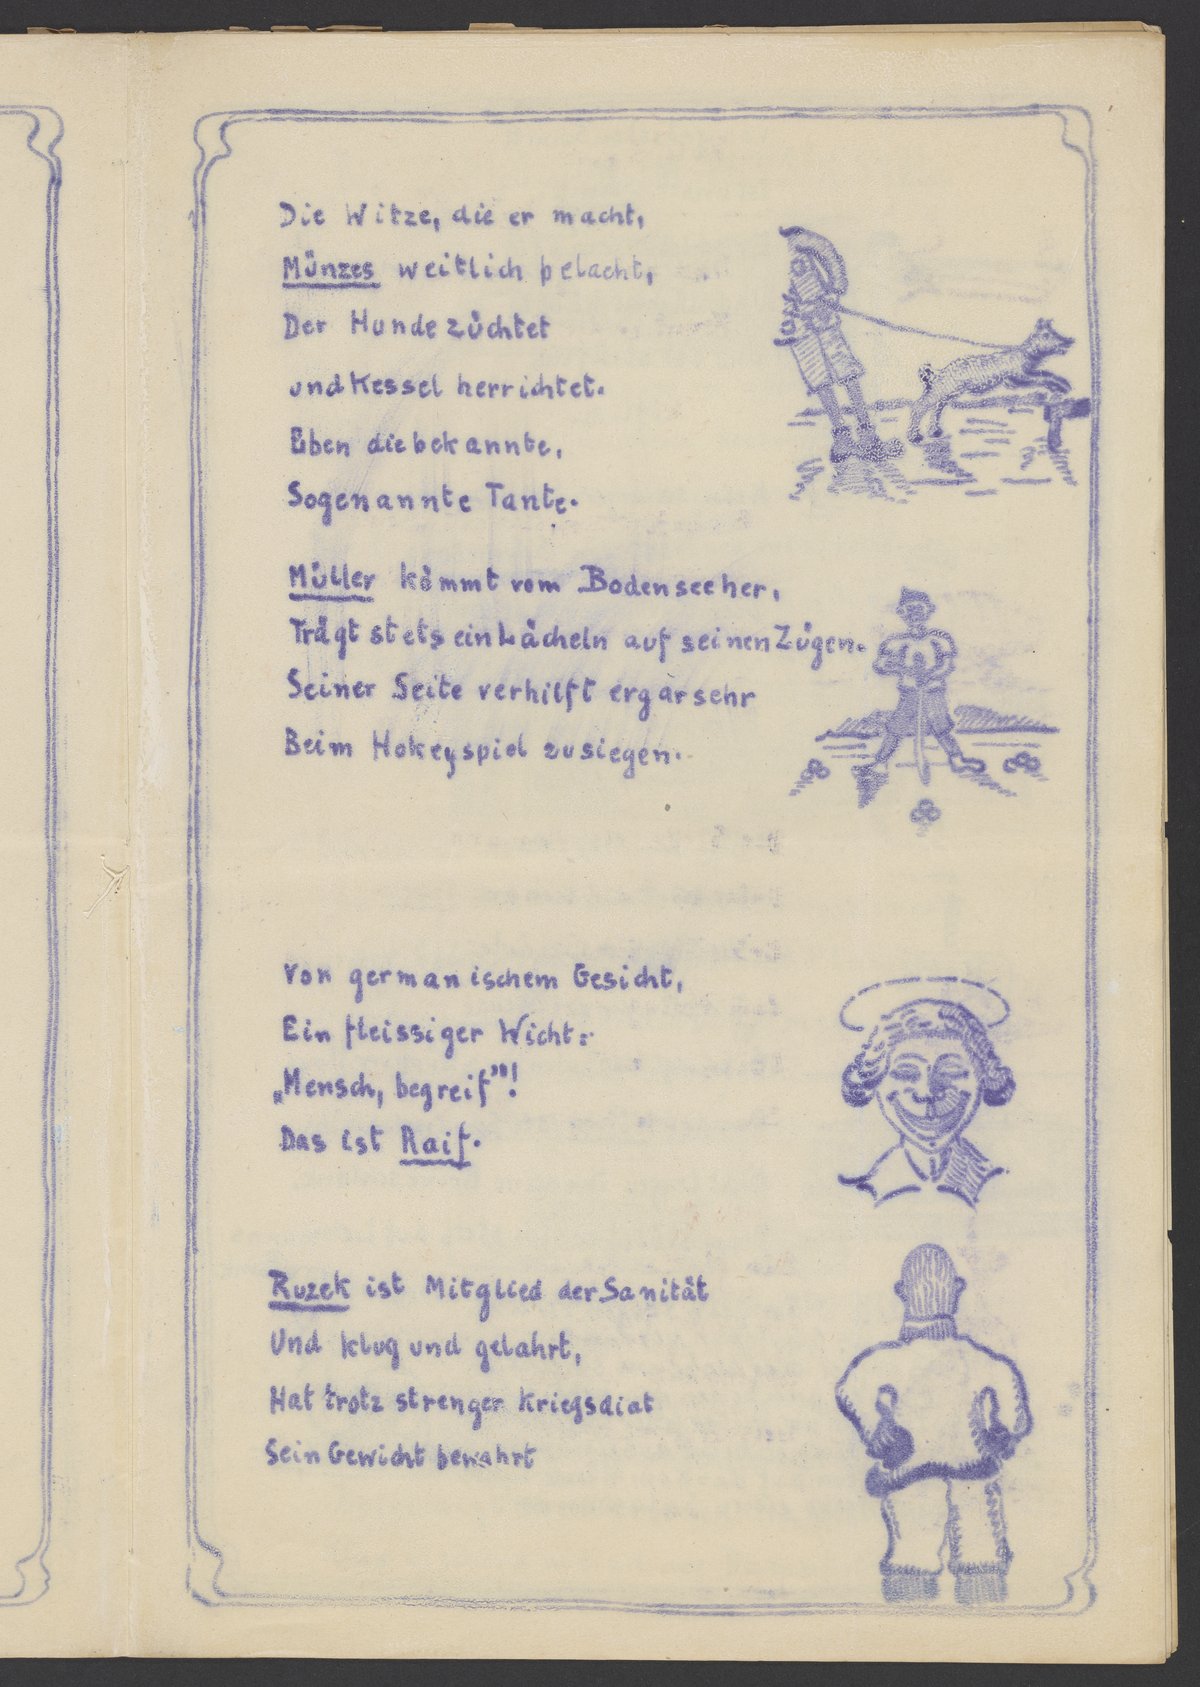 Die Witze, die er macht,
Münzes weitlich belacht,
Der Hunde züchtet
und Kessel herrichtet.
Eben die bekannte,
Sogenannte Tante.
Müller kömmt vom Bodensee her,
Trägt stets ein Lächeln auf seinen Zügen.
Seiner Seite verhilft er gar sehr
Beim Hokeyspiel zu siegen.
Von germanischem Gesicht,
Ein fleissiger Wicht:
„Mensch, begreif"!
Das ist Raif.
Ruzek ist Mitglied der Sanität
Und klug und gelahrt,
Hat trotz strenger Kriegsdiat
Sein Gewicht bewahrt